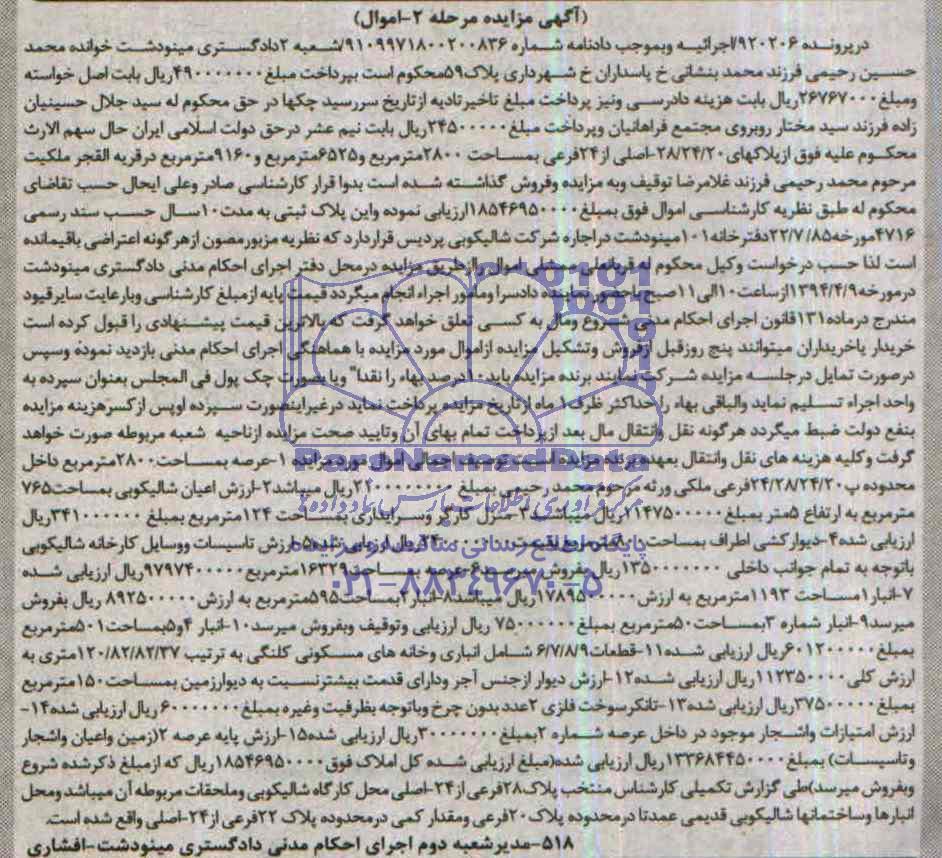 (آگهی مزایده مرحله ۲-اموال)
درپرونده ۹۲۰۲۰۶/اجرائیه وبموجب دادنامه شماره ۹۱۰۹۹۷۱۸۰۰۲۰۰۸۳۶/شعبه ۲دادگستری مینودشت خوانده محمد
حسین رحیمی فرزند محمد بنشانی خ پاسداران خ شهرداری پلاک۵۹محکوم است بپرداخت مبلغ۴۹۰۰۰۰۰۰۰ریال بابت اصل خواسته
ومبلغ۲۶۷۶۷۰۰۰ریال بابت هزینه دادرسی ونیز پرداخت مبلغ تاخیرتادیه ازتاریخ سررسید چکها در حق محکوم له سید جلال حسینیان
زاده فرزند سید مختار روبروی مجتمع فراهانیان وپرداخت مبلغ۲۴۵۰۰۰۰۰ریال بابت نیم عشر درحق دولت اسلامی ایران حال سهم الارث
محکوم علیه فوق ازپلاکهای ۲۸/۲۴/۲۰-اصلی از۲۴فرعی بمساحت ۲۸۰۰مترمربع و۶۵۲۵مترمربع و۹۱۶۰مترمربع درقریه القجر ملکیت
مرحوم محمد رحیمی فرزند غلامرضا توقیف وبه مزایده وفروش گذاشته شده است بدوا قرار کارشناسی صادر وعلی ایحال حسب تقاضای
محکوم له طبق نظریه کارشناسی اموال فوق بمبلغ۱۸۵۴۶۹۵۰۰۰۰ارزیابی نموده واین پلاک ثبتی به مدت۱۰سال حسب سند رسمی
۴۷۱۶مورخه۲۲/۷/۸۵دفترخانه۱۰۱مینودشت دراجاره شرکت شالیکوبی پردیس قراردارد که نظریه مزبورمصون ازهرگونه اعتراضی باقیمانده
است لذا حسب درخواست وکیل محکوم له اموال راازطریق مزایده درمحل دفتر اجرای احکام مدنی دادگستری مینودشت
درمورخه۱۳۹۴/۴/۹ازساعت۱۰الی۱۱صبح باحضور نماینده دادسرا ومامور اجراء انجام میگردد قیمت پایه ازمبلغ کارشناسی وبارعایت سایرقیود
مندرج درماده۱۳۱قانون اجرای احکام مدنی شروع ومال به کسی تعلق خواهد گرفت که بالاترین قیمت پیشنهادی را قبول کرده است
خریدار یاخریداران میتوانند پنج روزقبل ازفروش وتشکیل مزایده ازاموال مورد مزایده با هماهنگی اجرای احکام مدنی بازدید نموده وسپس
درصورت تمایل درجلسه مزایده شرکت نمایند برنده مزایده باید۱۰درصد بهاء را نقدا" ویا بصورت چک پول فی المجلس بعنوان سپرده به
واحد اجراء تسلیم نماید والباقی بهاء راحداکثر ظرف۱ماه ازتاریخ مزایده پرداخت نماید درغیراینصورت سپرده اوپس ازکسرهزینه مزایده
بنفع دولت ضبط میگردد هرگونه نقل وانتقال مال بعد ازپرداخت تمام بهای آن وتایید صحت مزایده ازناحیه شعبه مربوطه صورت خواهد
گرفت وکلیه هزینه های نقل وانتقال بعهده برنده مزایده است توصیف اجمالی اموال مورد مزایده ۱-عرصه بمساحت۲۸۰۰مترمربع داخل
محدوده پ۲۴/۲۸/۲۴/۲۰فرعی ملکی ورثه مرحوم محمد رحیمی بمبلغ ریال میباشد۲-ارزش اعیان شالیکوبی بمساحت۷۶۵
مترمربع به ارتفاع ۵متر بمبلغ۲۱۴۷۵۰۰۰۰۰ریال میباشد۳-منزل کارگر وسرایداری بمساحت ۱۲۴مترمربع بمبلغ ۳۴۱۰۰۰۰۰۰ریال
ارزیابی شده۴-دیوارکشی اطراف بمساحت ریال ارزیابی شده۵-ارزش تاسیسات ووسایل کارخانه شالیکوبی
باتوجه به تمام جوانب داخلی ۱۳۵۰۰۰۰۰۰۰ریال بفروش میرسد۶-عرصه بمساحت۱۶۳۲۹مترمربع۹۷۹۷۴۰۰۰۰۰ریال ارزیابی شده
۷-انبار۱مساحت ۱۱۹۳مترمربع به ارزش۱۷۸۹۵۰۰۰۰۰ریال میباشد۸-انبار۲بمساحت۵۹۵مترمربع به ارزش۸۹۲۵۰۰۰۰۰ ریال بفروش
میرسد۹-انبار شماره ۳بمساحت۵۰مترمربع بمبلغ۷۵۰۰۰۰۰۰ ریال ارزیابی وتوقیف وبفروش میرسد۱۰-انبار ۴و۵بمساحت۵۰۱مترمربع
بمبلغ۶۰۱۲۰۰۰۰۰ریال ارزیابی شده۱۱-قطعات۶/۷/۸/۹ شامل انباری وخانه های مسکونی کلنگی به ترتیب ۱۲۰/۸۲/۸۲/۳۷متری به
ارزش کلی۱۱۲۳۵۰۰۰۰ریال ارزیابی شده۱۲-ارزش دیوار ازجنس آجر ودارای قدمت بیشترنسبت به دیوارزمین بمساحت۱۵۰مترمربع
بمبلغ۳۷۵۰۰۰۰۰ریال ارزیابی شده۱۳-تانکرسوخت فلزی ۲عدد بدون چرخ وباتوجه بظرفیت وغیره بمبلغ۶۰۰۰۰۰۰۰ریال ارزیابی شده۱۴-
ارزش امتیازات واشجار موجود در داخل عرصه شماره ۲بمبلغ۳۰۰۰۰۰۰۰ریال ارزیابی شده۱۵-ارزش پایه عرصه ۲(زمین واعیان واشجار
وتاسیسات) بمبلغ۱۳۳۶۸۴۴۵۰۰۰ریال ارزیابی شده(مبلغ ارزیابی شده کل املاک فوق۱۸۵۴۶۹۵۰۰۰۰ریال که ازمبلغ ذکرشده شروع
وبفروش میرسد)طی گزارش تکمیلی کارشناس منتخب پلاک۲۸فرعی از۲۴-اصلی محل کارگاه شالیکوبی وملحقات مربوطه آن میباشد ومحل
انبارها وساختمانها شالیکوبی قدیمی عمدتا درمحدوده پلاک ۲۰فرعی ومقدار کمی درمحدوده پلاک ۲۲فرعی از۲۴-اصلی واقع شده است.
۵۱۸-مدیرشعبه دوم اجرای احکام مدنی دادگستری مینودشت-افشاری
ParsNamadData
پایگاه اطلاع رسانی مناقصه و مزایده
۰۲۱-۸۸۳۴۹۶۷۰-۵